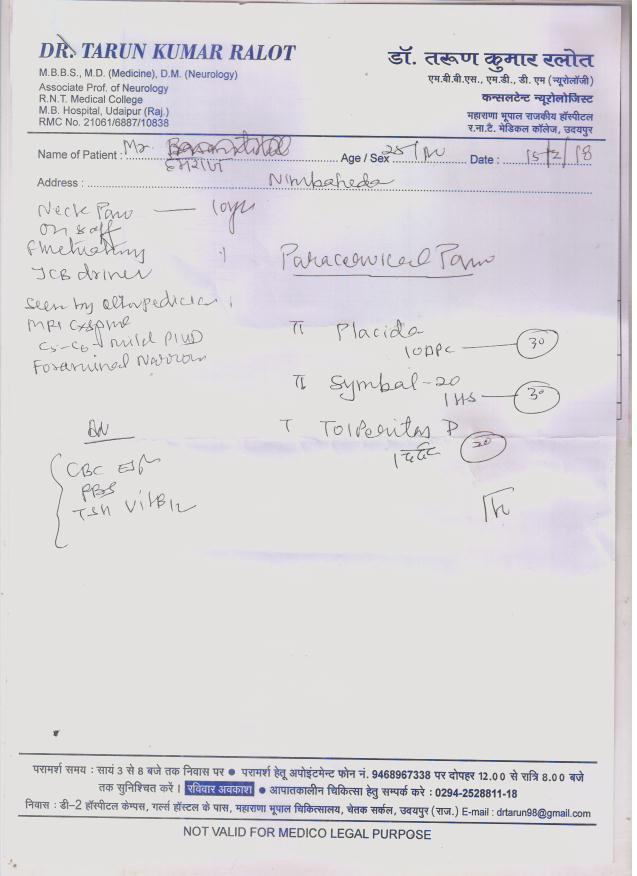 DR. TARUN KUMAR RALOT
M.B.B.S., M.D. (Medicine), D.M. (Neurology)
Associate Prof. of Neurology
R.N.T. Medical College
M.B. Hospital, Udaipur (Raj.)
RMC No. 21061/6887/10838
डॉ. तरूण कुमार रलोत
एम.बी.बी.एस., एम.डी., डी. एम (न्यूरोलॉजी)
कन्सलटेन्ट न्यूरोलोजिस्ट
महाराणा भूपाल राजकीय हॉस्पीटल
र.ना.टै. मेडिकल कॉलेज, उदयपुर
Name of Patient : Mr. Age / Sex 25/M Date : 15/2/18
Address : Nimbaheda
Neck Pain — 10yr
on & off
Fluctuating
JCB driver
Paracervical Pain
Seen by
MRI C spine
C5-C6 mild PIVD
Foraminal Narrow
Placida
10DPC — 30
Symbal-20
1HS — 30
T Tolperitas D
20
CBC
PBS
TSH Vit B12
परामर्श समय : सायं 3 से 8 बजे तक निवास पर ● परामर्श हेतू अपोइंटमेन्ट फोन नं. 9468967338 पर दोपहर 12.00 से रात्रि 8.00 बजे
तक सुनिश्चित करें | रविवार अवकाश ● आपातकालीन चिकित्सा हेतु सम्पर्क करे : 0294-2528811-18
निवास : डी-2 हॉस्पीटल केम्पस, गर्ल्स हॉस्टल के पास, महाराणा भूपाल चिकित्सालय, चेतक सर्कल, उदयपुर (राज.) E-mail : drtarun98@gmail.com
NOT VALID FOR MEDICO LEGAL PURPOSE